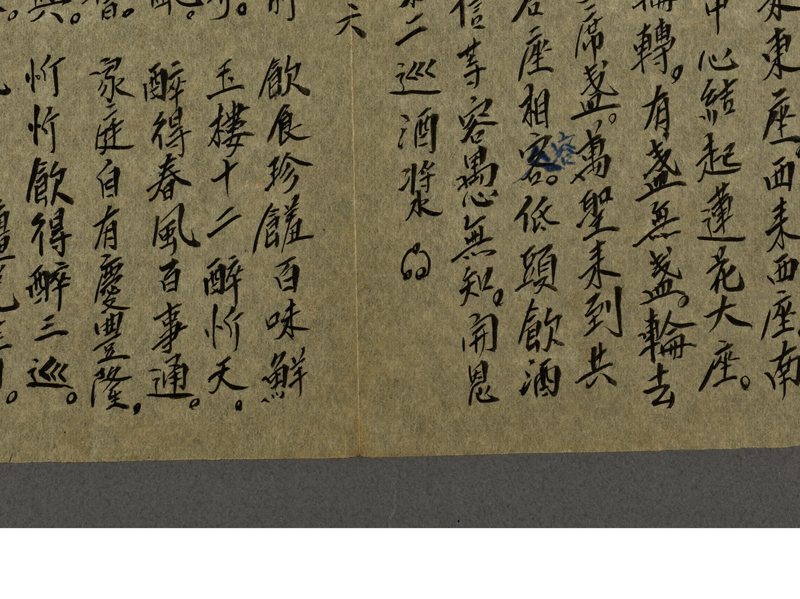 東座西来西座南
中心結起蓮花大座。
轉。有盞無盞。輪去
席盞。萬聖来到共
座相容。低頭飲酒
信等容愚無知。開恩
二巡酒漿
六
飲食珍饈百味鮮
玉樓十二醉忻天。
醉得春風百事通。
家庭自有慶豊隆，
忻忻飲得醉三巡。